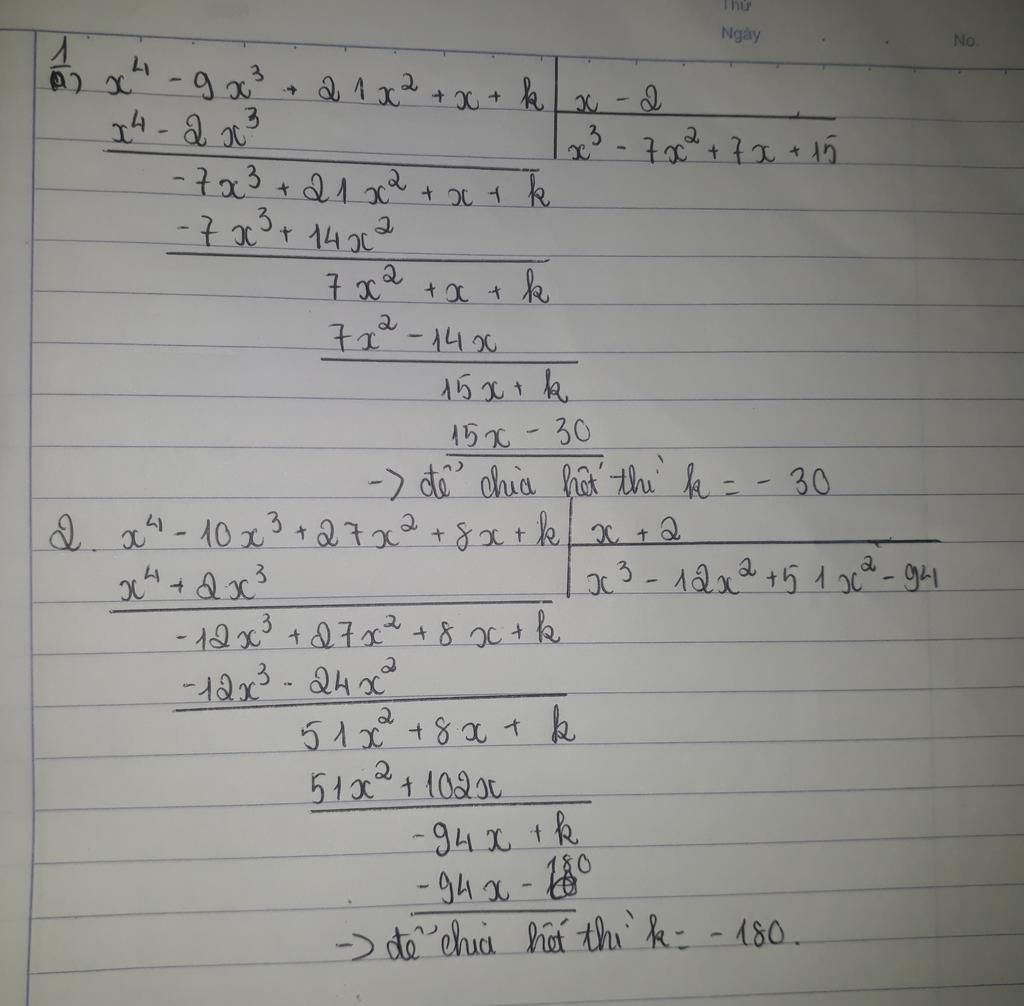 Thứ
Ngày . . No.
1
a) x⁴ - 9x³ + 21x² + x + k | x - 2
x⁴ - 2x³ | x³ - 7x² + 7x + 15
-7x³ + 21x² + x + k
-7x³ + 14x²
7x² + x + k
7x² - 14x
15x + k
15x - 30
-> để chia hết thì k = - 30
2. x⁴ - 10x³ + 27x² + 8x + k | x + 2
x⁴ + 2x³ | x³ - 12x² + 51x² - 94
-12x³ + 27x² + 8x + k
-12x³ - 24x²
51x² + 8x + k
51x² + 102x
-94x + k
-94x - 180
-> để chia hết thì k = -180.